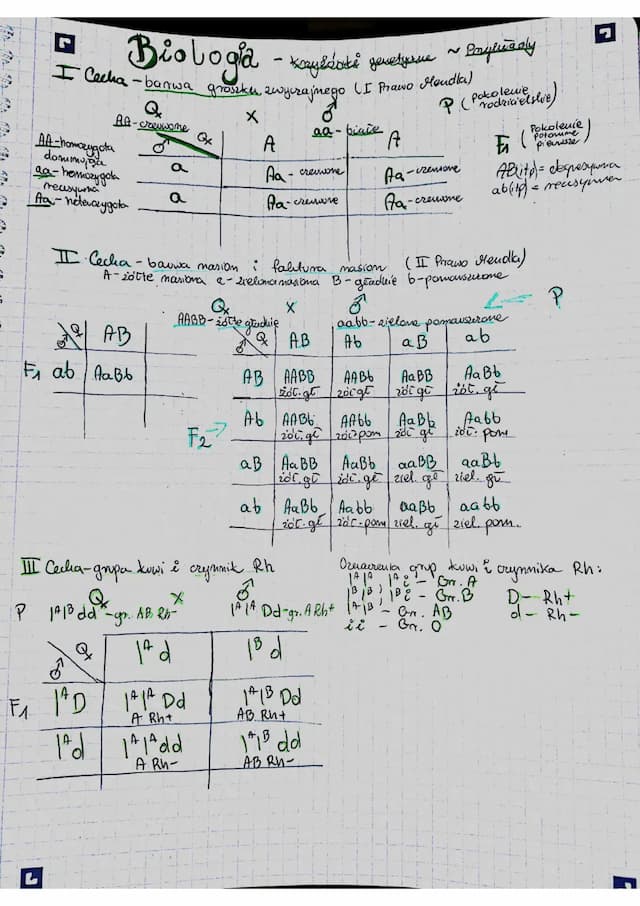 Biologia - krzyżówki genetyczne ~ Przykłady
I Cecha - barwa groszku zwyczajnego (I Prawo Mendla)
♀ x ♂ P (Pokolenie rodzicielskie)
AA - czerwone aa - białe
♂ ♀ A A
a Aa - czerwone Aa - czerwone
a Aa - czerwone Aa - czerwone
AA - homozygota dominująca
aa - homozygota recesywna
Aa - heterozygota
F1 (Pokolenie potomne pierwsze)
ab (itp) = recesywna
II Cecha - barwa nasion i faktura nasion (II Prawo Mendla)
A - żółte nasiona a - zielone nasiona B - gładkie b - pomarszczone
♀ x ♂ P
AABB - żółte gładkie aabb - zielone pomarszczone
♂ ♀ AB
F1 ab AaBb
F2
♂ ♀ AB Ab aB ab
AB AABB AABb AaBB AaBb
żół. gł żół gł żół. gł żół. gł.
Ab AABb AAbb AaBb Aabb
żół. gł żół pom żół. gł żół. pom
aB AaBB AaBb aaBB aaBb
żół. gł żół. gł ziel. gł ziel. gł
ab AaBb Aabb aaBb aabb
żół. gł żół. pom ziel. gł ziel. pom.
III Cecha - grupa krwi i czynnik Rh
P ♀ x ♂
IᴬIᴮ dd - gr. AB Rh- IᴬIᴬ Dd - gr. A Rh+
♂ ♀ Iᴬ d Iᴮ d
F1 Iᴬ D IᴬIᴬ Dd IᴬIᴮ Dd
A Rh+ AB Rh+
Iᴬ d IᴬIᴬ dd IᴬIᴮ dd
A Rh- AB Rh-
Oznaczenia grup krwi i czynnika Rh:
IᴬIᴬ, Iᴬi - Gr. A
IᴮIᴮ, Iᴮi - Gr. B
IᴬIᴮ - Gr. AB
ii - Gr. 0
D - Rh+
d - Rh-